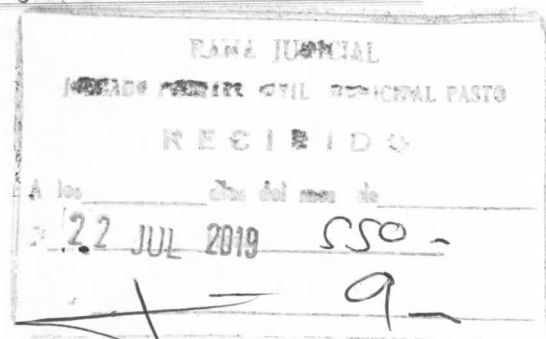 RAMA JUDICIAL
JUZGADO PRIMERO CIVIL MUNICIPAL PASTO
RECIBIDO
A los ______ días del mes de ______
22 JUL 2019 550 -